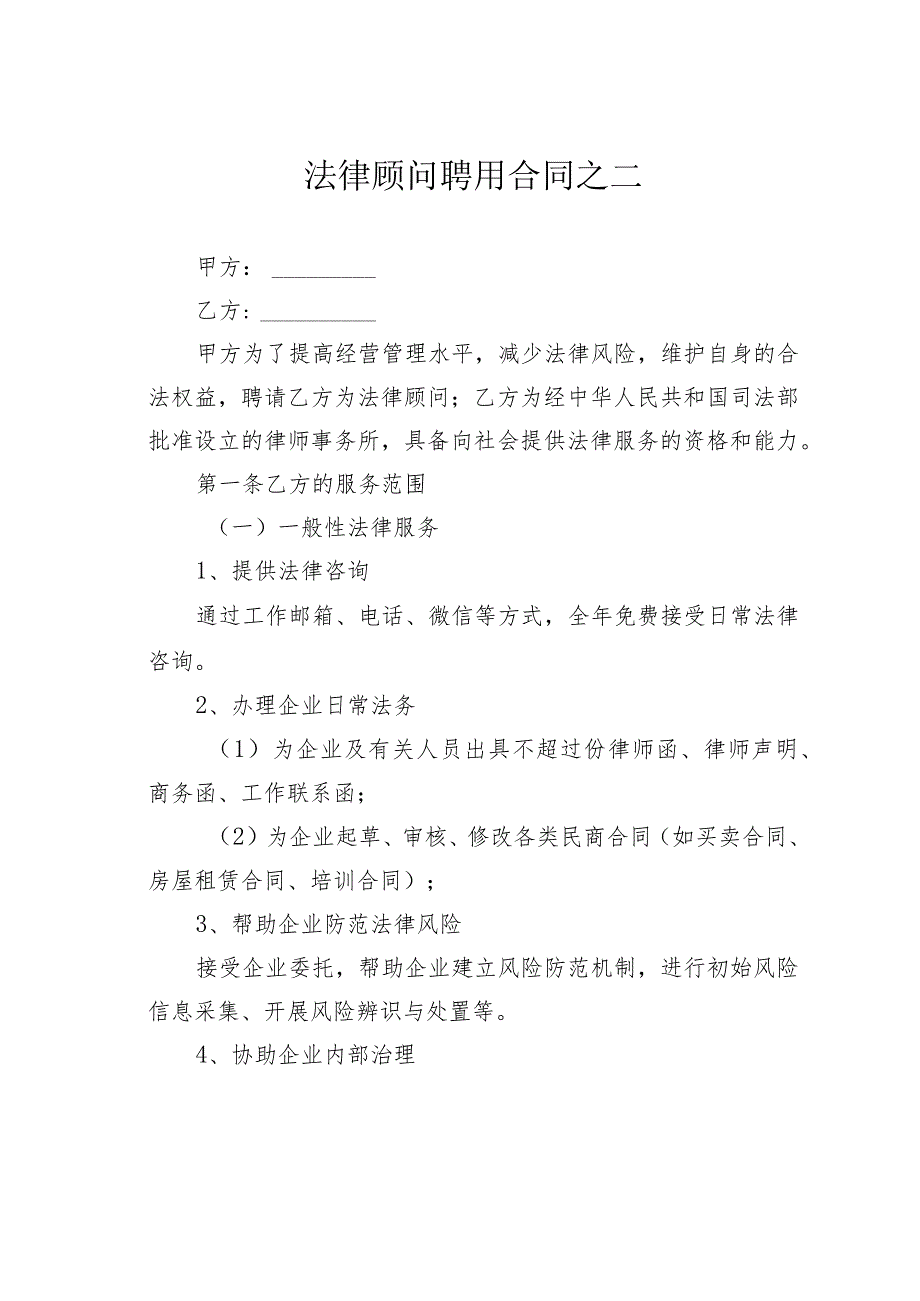 法律顾问聘用合同之二
甲方： _________
乙方: __________
甲方为了提高经营管理水平，减少法律风险，维护自身的合
法权益，聘请乙方为法律顾问；乙方为经中华人民共和国司法部
批准设立的律师事务所，具备向社会提供法律服务的资格和能力。
第一条乙方的服务范围
（一）一般性法律服务
1、提供法律咨询
通过工作邮箱、电话、微信等方式，全年免费接受日常法律
咨询。
2、办理企业日常法务
（1）为企业及有关人员出具不超过份律师函、律师声明、
商务函、工作联系函；
（2）为企业起草、审核、修改各类民商合同（如买卖合同、
房屋租赁合同、培训合同）；
3、帮助企业防范法律风险
接受企业委托，帮助企业建立风险防范机制，进行初始风险
信息采集、开展风险辨识与处置等。
4、协助企业内部治理